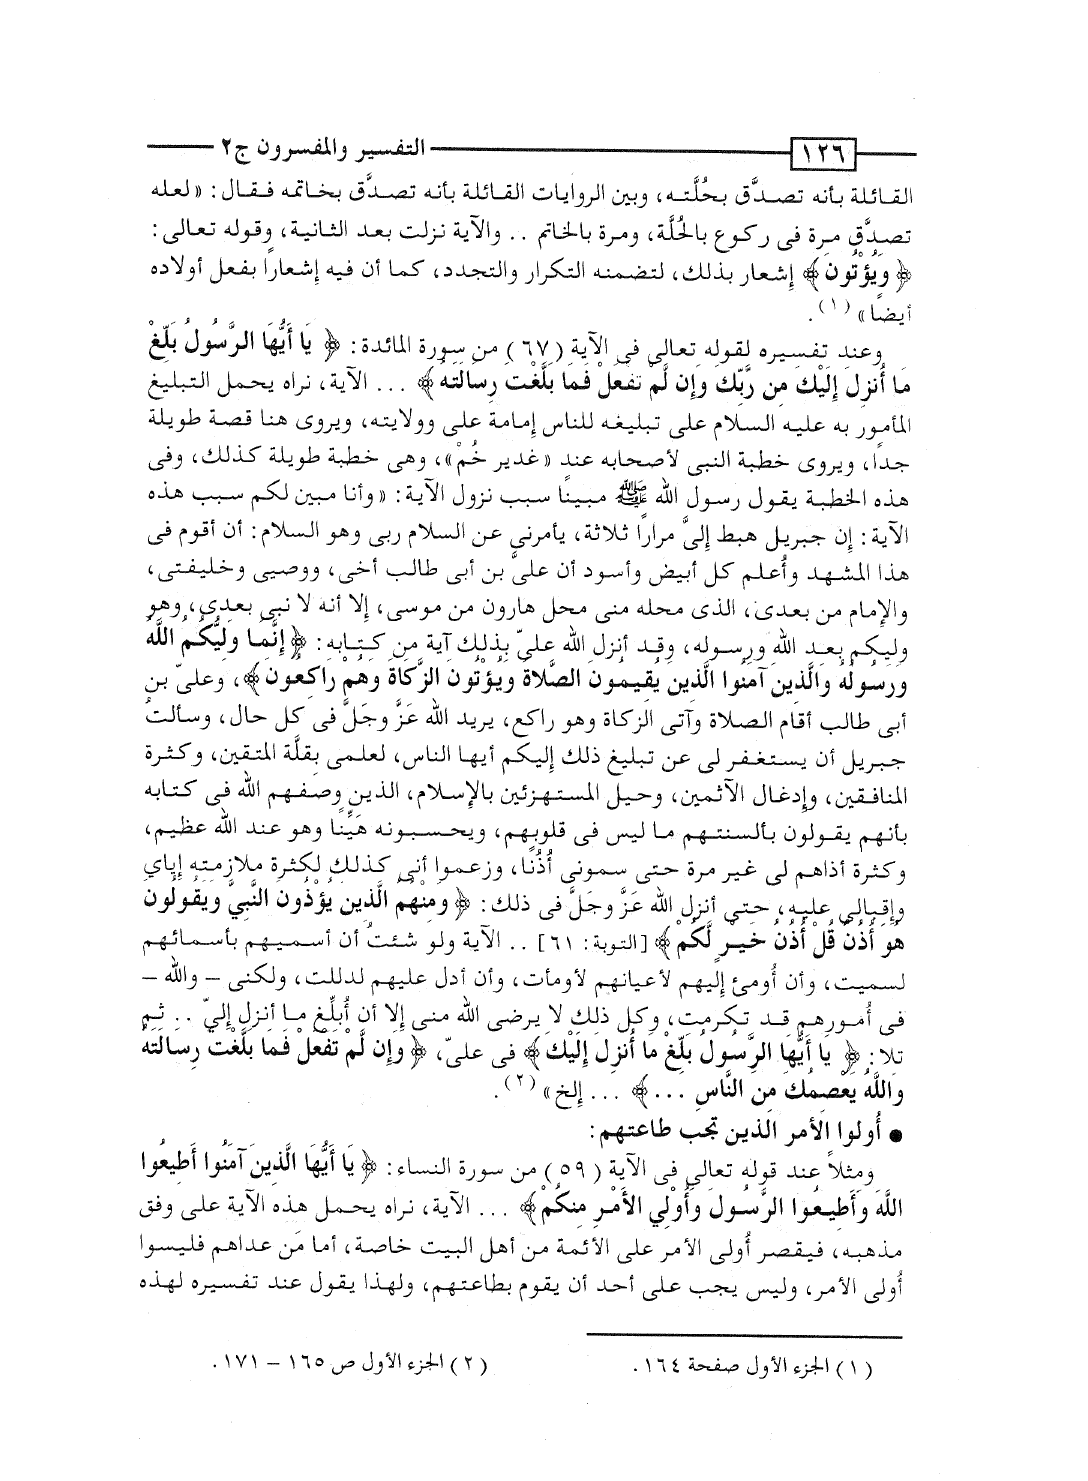 ١٢٦ التفسير والمفسرون ج٢
القائلة بأنه تصدَّق بحُلَّته، وبين الروايات القائلة بأنه تصدَّق بخاتمه فقال: «لعله
تصدَّق مرة فى ركوع بالحُلَّة، ومرة بالخاتم .. والآية نزلت بعد الثانية، وقوله تعالى:
﴿ وَيُؤْتُونَ ﴾ إشعار بذلك، لتضمنه التكرار والتجدد، كما أن فيه إشعاراً بفعل أولاده
أيضاً» (١).
وعند تفسيره لقوله تعالى فى الآية (٦٧) من سورة المائدة: ﴿ يَا أَيُّهَا الرَّسُولُ بَلِّغْ
مَا أُنزِلَ إِلَيْكَ مِن رَّبِّكَ وَإِن لَّمْ تَفْعَلْ فَمَا بَلَّغْتَ رِسَالَتَهُ ﴾ ... الآية، نراه يحمل التبليغ
المأمور به عليه السلام على تبليغه للناس إمامة على وولايته، ويروى هنا قصة طويلة
جداً، ويروى خطبة النبى لأصحابه عند «غدير خُم»، وهى خطبة طويلة كذلك، وفى
هذه الخطبة يقول رسول الله ﷺ مبيناً سبب نزول الآية: «وأنا مبين لكم سبب هذه
الآية: إن جبريل هبط إلىَّ مراراً ثلاثة، يأمرنى عن السلام ربى وهو السلام: أن أقوم فى
هذا المشهد وأُعلم كل أبيض وأسود أن علىَّ بن أبى طالب أخى، ووصيى وخليفتى،
والإمام من بعدى، الذى محله منى محل هارون من موسى، إلا أنه لا نبى بعدى، وهو
وليكم بعد الله ورسوله، وقد أنزل الله علىّ بذلك آية من كتابه: ﴿ إِنَّمَا وَلِيُّكُمُ اللَّهُ
وَرَسُولُهُ وَالَّذِينَ آمَنُوا الَّذِينَ يُقِيمُونَ الصَّلَاةَ وَيُؤْتُونَ الزَّكَاةَ وَهُمْ رَاكِعُونَ ﴾، وعلىّ بن
أبى طالب أقام الصلاة وآتى الزكاة وهو راكع، يريد الله عَزَّ وجَلَّ فى كل حال، وسألتُ
جبريل أن يستغفر لى عن تبليغ ذلك إليكم أيها الناس، لعلمى بقلَّة المتقين، وكثرة
المنافقين، وإدغال الآثمين، وحيل المستهزئين بالإسلام، الذين وصفهم الله فى كتابه
بأنهم يقولون بألسنتهم ما ليس فى قلوبهم، ويحسبونه هَيِّناً وهو عند الله عظيم،
وكثرة أذاهم لى غير مرة حتى سمونى أُذُناً، وزعموا أنى كذلك لكثرة ملازمته إياي
وإقبالى عليه، حتى أنزل الله عَزَّ وجَلَّ فى ذلك: ﴿ وَمِنْهُمُ الَّذِينَ يُؤْذُونَ النَّبِيَّ وَيَقُولُونَ
هُوَ أُذُنٌ قُلْ أُذُنُ خَيْرٍ لَّكُمْ ﴾ [التوبة: ٦١] .. الآية ولو شئتُ أن أسميهم بأسمائهم
لسميت، وأن أُومئ إليهم لأعيانهم لأومأت، وأن أدل عليهم لدللت، ولكنى – والله –
فى أُمورهم قد تكرمت، وكل ذلك لا يرضى الله منى إلا أن أُبلِّغ ما أنزل إلىّ .. ثم
تلا: ﴿ يَا أَيُّهَا الرَّسُولُ بَلِّغْ مَا أُنزِلَ إِلَيْكَ ﴾ فى علىّ، ﴿ وَإِن لَّمْ تَفْعَلْ فَمَا بَلَّغْتَ رِسَالَتَهُ
وَاللَّهُ يَعْصِمُكَ مِنَ النَّاسِ ... ﴾ ... إلخ» (٢).
● أُولوا الأمر الذين تجب طاعتهم:
ومثلاً عند قوله تعالى فى الآية (٥٩) من سورة النساء: ﴿ يَا أَيُّهَا الَّذِينَ آمَنُوا أَطِيعُوا
اللَّهَ وَأَطِيعُوا الرَّسُولَ وَأُوْلِي الأَمْرِ مِنكُمْ ﴾ ... الآية، نراه يحمل هذه الآية على وفق
مذهبه، فيقصر أُولى الأمر على الأئمة من أهل البيت خاصة، أما مَن عداهم فليسوا
أُولى الأمر، وليس يجب على أحد أن يقوم بطاعتهم، ولهذا يقول عند تفسيره لهذه
(١) الجزء الأول صفحة ١٦٤.
(٢) الجزء الأول ص ١٦٥ – ١٧١.